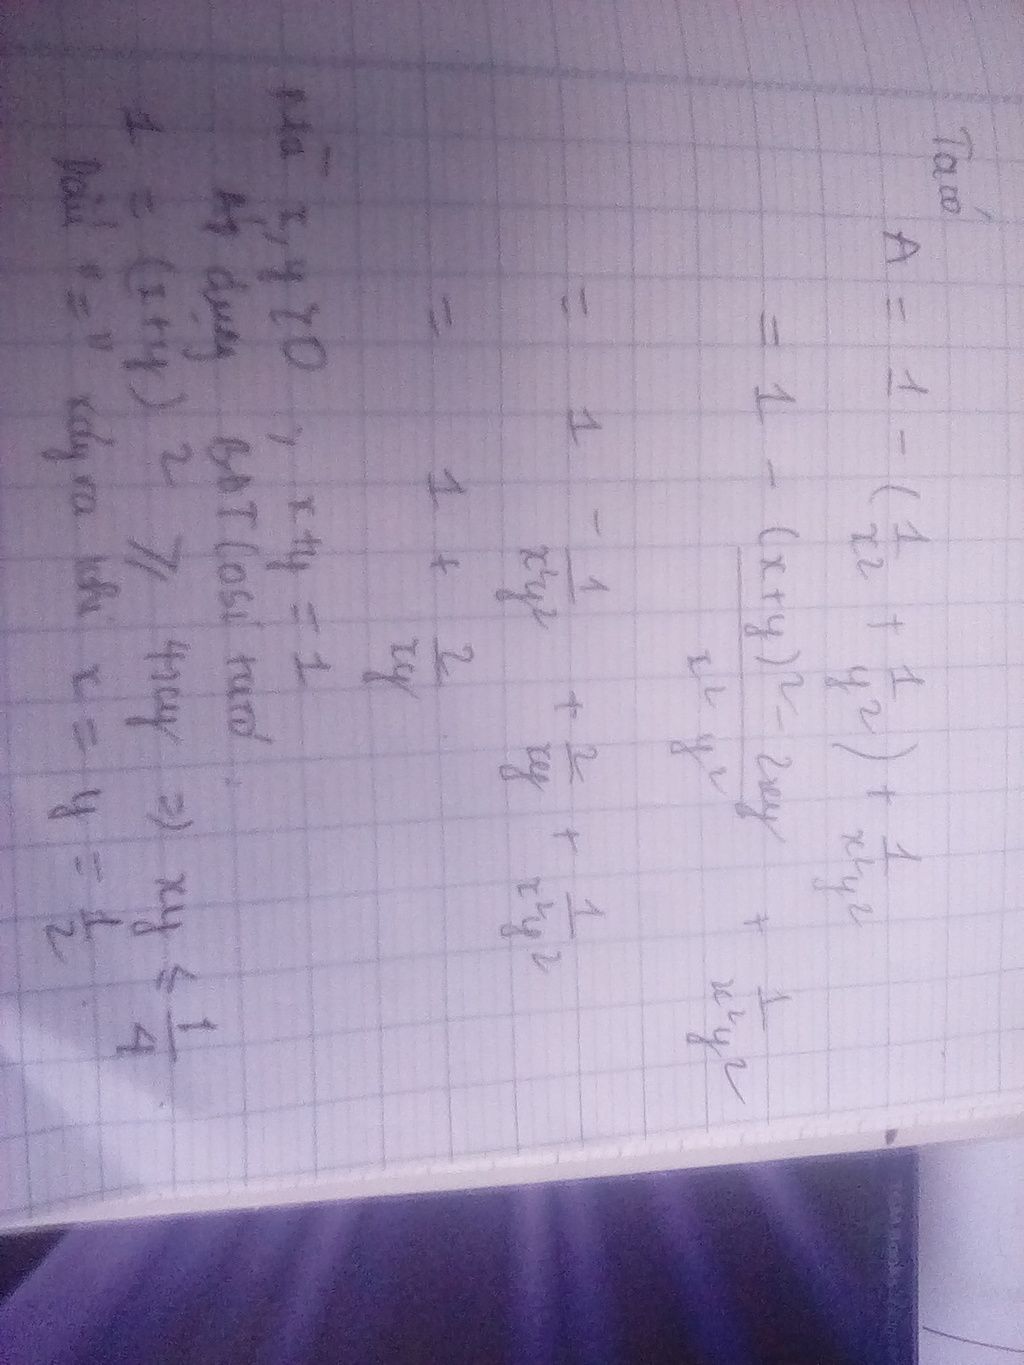 Ta có
A = 1 - (1/x² + 1/y²) + 1/x²y²
= 1 - (x+y)² - 2xy / x² y² + 1/x²y²
= 1 - 1/x²y² + 2/xy + 1/x²y²
= 1 + 2/xy
Mà x,y > 0, x+y = 1
Áp dụng BĐT Cosi ta có
1 = (x+y)² ≥ 4xy => xy ≤ 1/4
Dấu "=" xảy ra khi x = y = 1/2